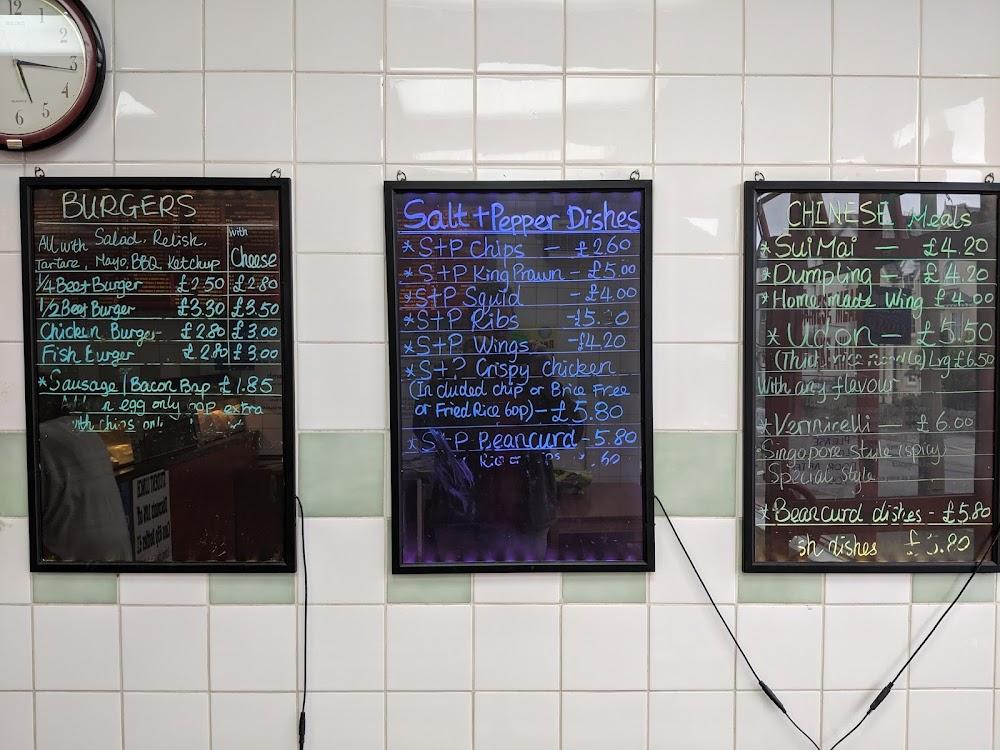 12
1
2
3
4
5
6
BURGERS
All with Salad, Relish,
Tartare, Mayo, BBQ, Ketchup
with
Cheese
1/4 Beef Burger £2.50 £2.80
1/2 Beef Burger £3.30 £3.50
Chicken Burger £2.80 £3.00
Fish Burger £2.80 £3.00
*Sausage / Bacon Bap £1.85
egg only 90p extra
with chips only
Salt + Pepper Dishes
* S+P Chips — £2.60
* S+P King Prawn - £5.00
* S+P Squid - £4.00
* S+P Ribs
* S+P Wings - £4.20
* S+P Crispy chicken
(Included chip or B.rice Free
or Fried Rice 60p) - £5.80
* S+P Beancurd - 5.80
CHINESE Meals
* Sui Mai — £4.20
* Dumpling — £4.20
* Home made Wing £4.00
* Udon — £5.50
(Thick rice noodle) Lrg £6.50
With any flavour
* Vermicelli — £6.00
Singapore style (spicy)
Special style
* Beancurd dishes - £5.80
dishes